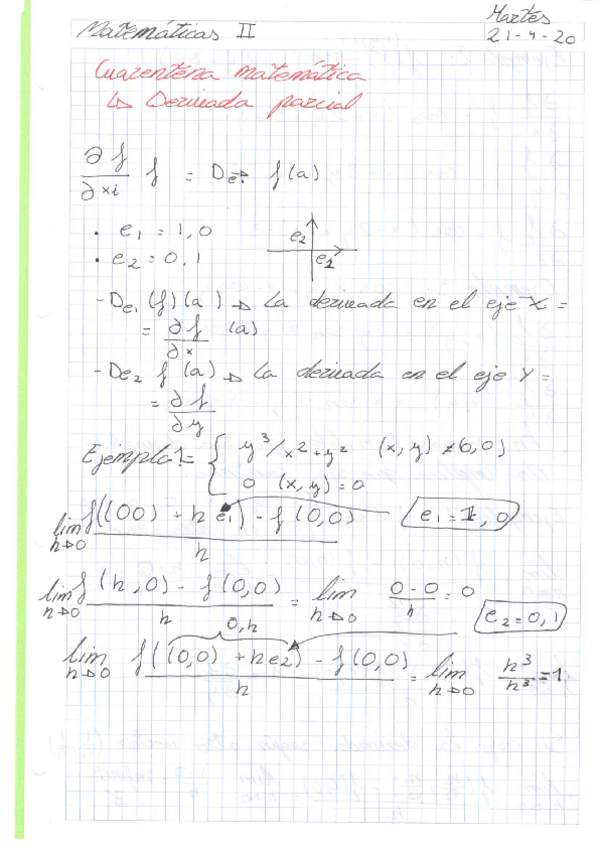 Matemáticas II
Martes
21-4-20
Cuarentena matemática
↳ Derivada parcial
∂f/∂xi f = De f(a)
• e1 = 1,0
• e2 = 0,1
e2
e1
-De1 (f)(a) → La derivada en el eje X =
= ∂f/∂x (a)
-De2 f(a) → La derivada en el eje Y =
= ∂f/∂y
Ejemplo 1= { y³/x²+y² (x,y) ≠ 0,0)
0 (x,y) = 0
lim h→0 f((00) + h e1) - f(0,0) / h
e1 = 1,0
lim h→0 f(h,0) - f(0,0) / h = lim h→0 0-0/h = 0
e2 = 0,1
0,h
lim h→0 f((0,0) + h e2) - f(0,0) / h = lim h→0 h³/h³ = 1